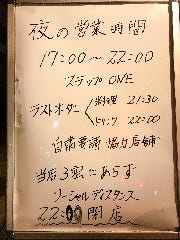 夜の営業時間
17:00〜22:00
ステップONE
ラストオーダー 料理 21:30
ドリンク 22:00
自粛要請 協力店舗
当店3密にあらず
ソーシャルディスタンス
22:00閉店